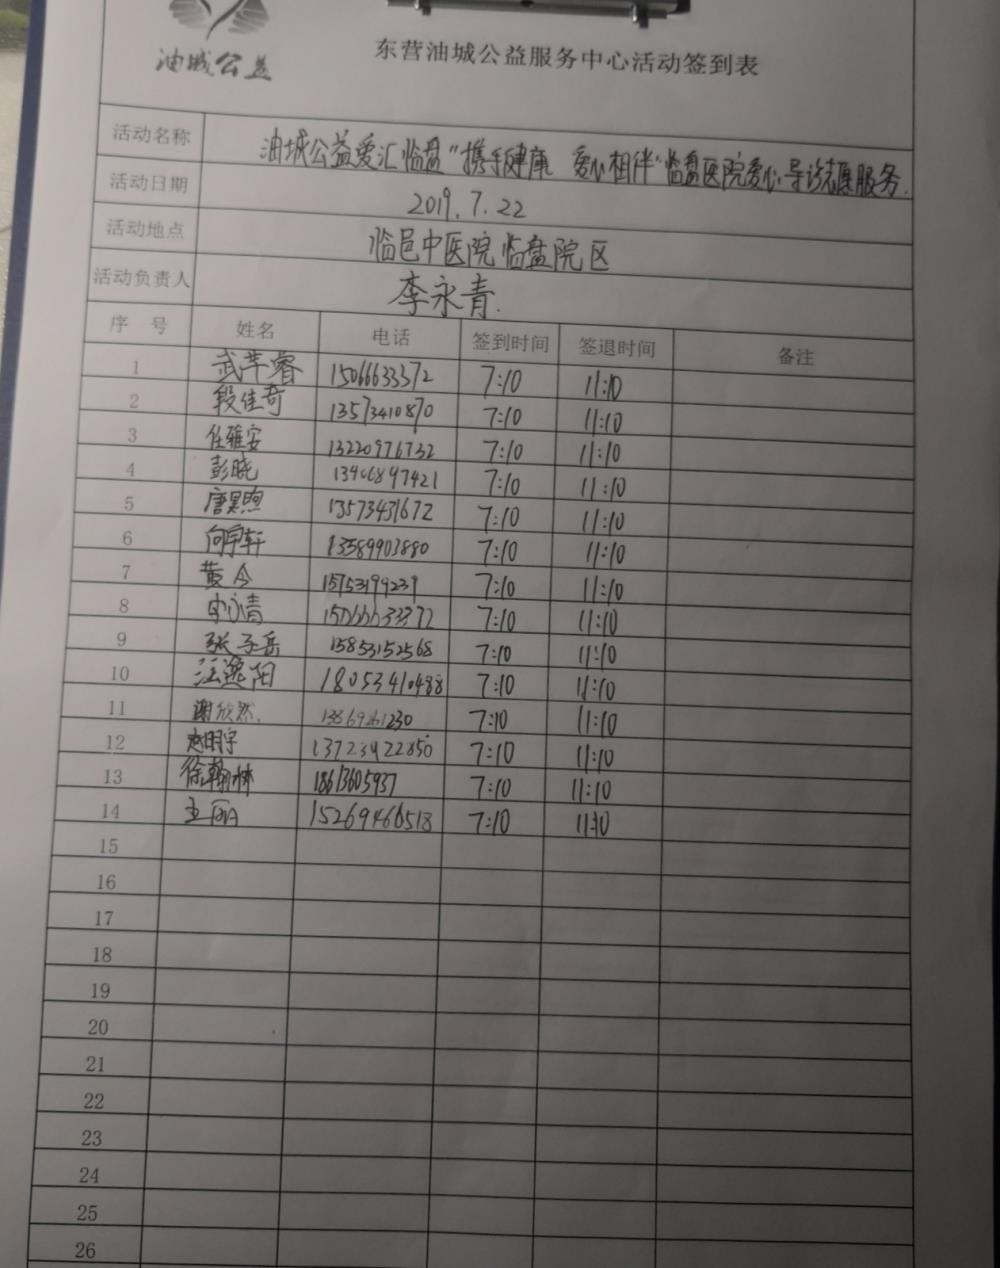 油城公益
东营油城公益服务中心活动签到表
活动名称 油城公益爱汇临盘"携手健康 爱心相伴"临盘医院爱心导诊志愿服务.
活动日期 2019.7.22
活动地点 临邑中医院临盘院区
活动负责人 李永青.
序 号 姓名 电话 签到时间 签退时间 备注
1 武芊睿 15066633372 7:10 11:10
2 段佳奇 13573410870 7:10 11:10
3 任雅安 13220976732 7:10 11:10
4 彭晓 13406897421 7:10 11:10
5 唐昊煦 13573431672 7:10 11:10
6 向宇轩 13589903880 7:10 11:10
7 黄令 15753199239 7:10 11:10
8 李永青 15066633372 7:10 11:10
9 张子岳 15853152568 7:10 11:10
10 汪逸阳 18053410488 7:10 11:10
11 谢欣然. 13869261230 7:10 11:10
12 赵明宇 13723922850 7:10 11:10
13 徐翰林 18613605937 7:10 11:10
14 王丽 15269466518 7:10 11:10
15
16
17
18
19
20
21
22
23
24
25
26